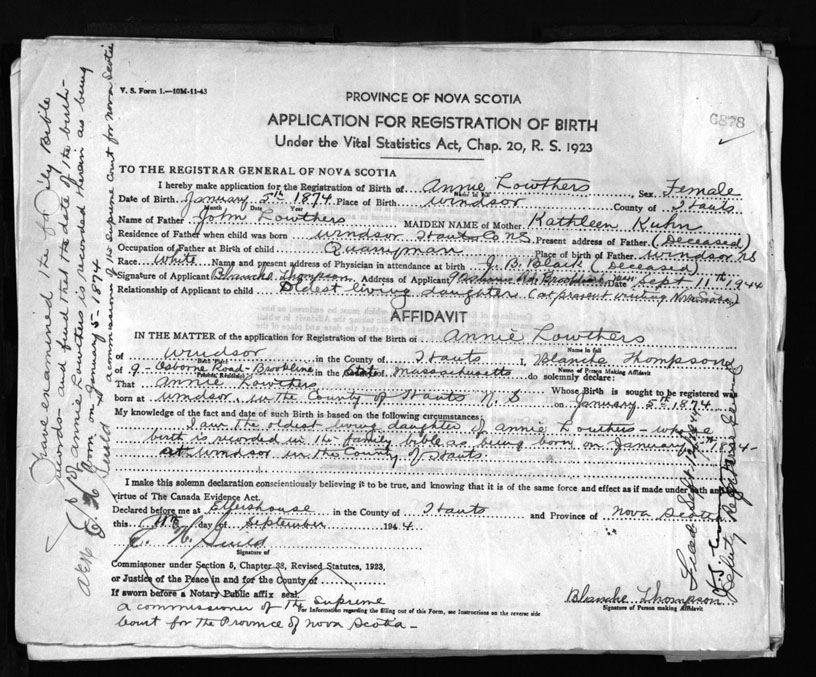 V. S. Form 1.—10M-11-43
6878
PROVINCE OF NOVA SCOTIA
APPLICATION FOR REGISTRATION OF BIRTH
Under the Vital Statistics Act, Chap. 20, R. S. 1923
TO THE REGISTRAR GENERAL OF NOVA SCOTIA
I hereby make application for the Registration of Birth of Annie Lowthers Sex Female
Date of Birth January 5th 1874 Place of Birth Windsor County of Hants
Month Date Year
Name of Father John Lowthers MAIDEN NAME of Mother Kathleen Kuhn
Residence of Father when child was born Windsor Hants Co NS Present address of Father (Deceased)
Occupation of Father at Birth of child Quarryman Place of birth of Father Windsor NS
Race White Name and present address of Physician in attendance at birth J. B. Black (Deceased)
Signature of Applicant Blanche Thompson Address of Applicant Date Sept 11th 1944
Relationship of Applicant to child Oldest living daughter (at present visiting
AFFIDAVIT
IN THE MATTER of the application for Registration of the Birth of Annie Lowthers
Name in full
of Windsor in the County of Hants I, Blanche Thompson
Name of Person Making Affidavit
of 9 - Osborne Road - Brookline in the State of Massachusetts do solemnly declare:
That Annie Lowthers Whose Birth is sought to be registered was
born at Windsor in the County of Hants N. S on January 5th 1874
My knowledge of the fact and date of such Birth is based on the following circumstances:
I am the oldest living daughter of Annie Lowthers - whose
birth is recorded in the family bible as being born on January 5th 1874 -
at Windsor in the County of Hants.
I make this solemn declaration conscientiously believing it to be true, and knowing that it is of the same force and effect as if made under oath and
virtue of The Canada Evidence Act.
Declared before me at Ellershouse in the County of Hants and Province of Nova Scotia
this 11th day of September 1944
Signature of
Commissoner under Section 5, Chapter 38, Revised Statutes, 1923,
or Justice of the Peace in and for the County of
If sworn before a Notary Public affix seal.
a commissioner of the Supreme
Court for the Province of Nova Scotia -
For Information regarding the filling out of this Form, see Instructions on the reverse side
Blanche Thompson
Signature of Person making Affidavit
I have examined the family Bible
records - and find that the date of the birth -
of Annie Lowthers is recorded therein as being
born on January 5 - 1874
a commissioner of the Supreme Court for Nova Scotia
Deputy Registrar General